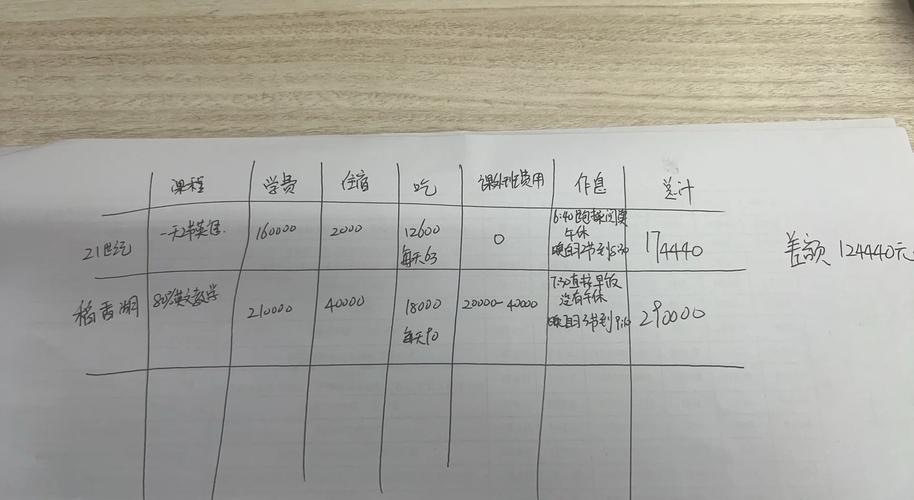 课程 学费 住宿 吃 课外班费用 作息 总计
21世纪 一天2节英语. 160000 2000 12600 每天63 0 6:40 午休 174440
稻香湖 80%英文教学 210000 40000 18000 每天90 20000-40000 7:30直接早饭 没有午休 290000
差额 124440元